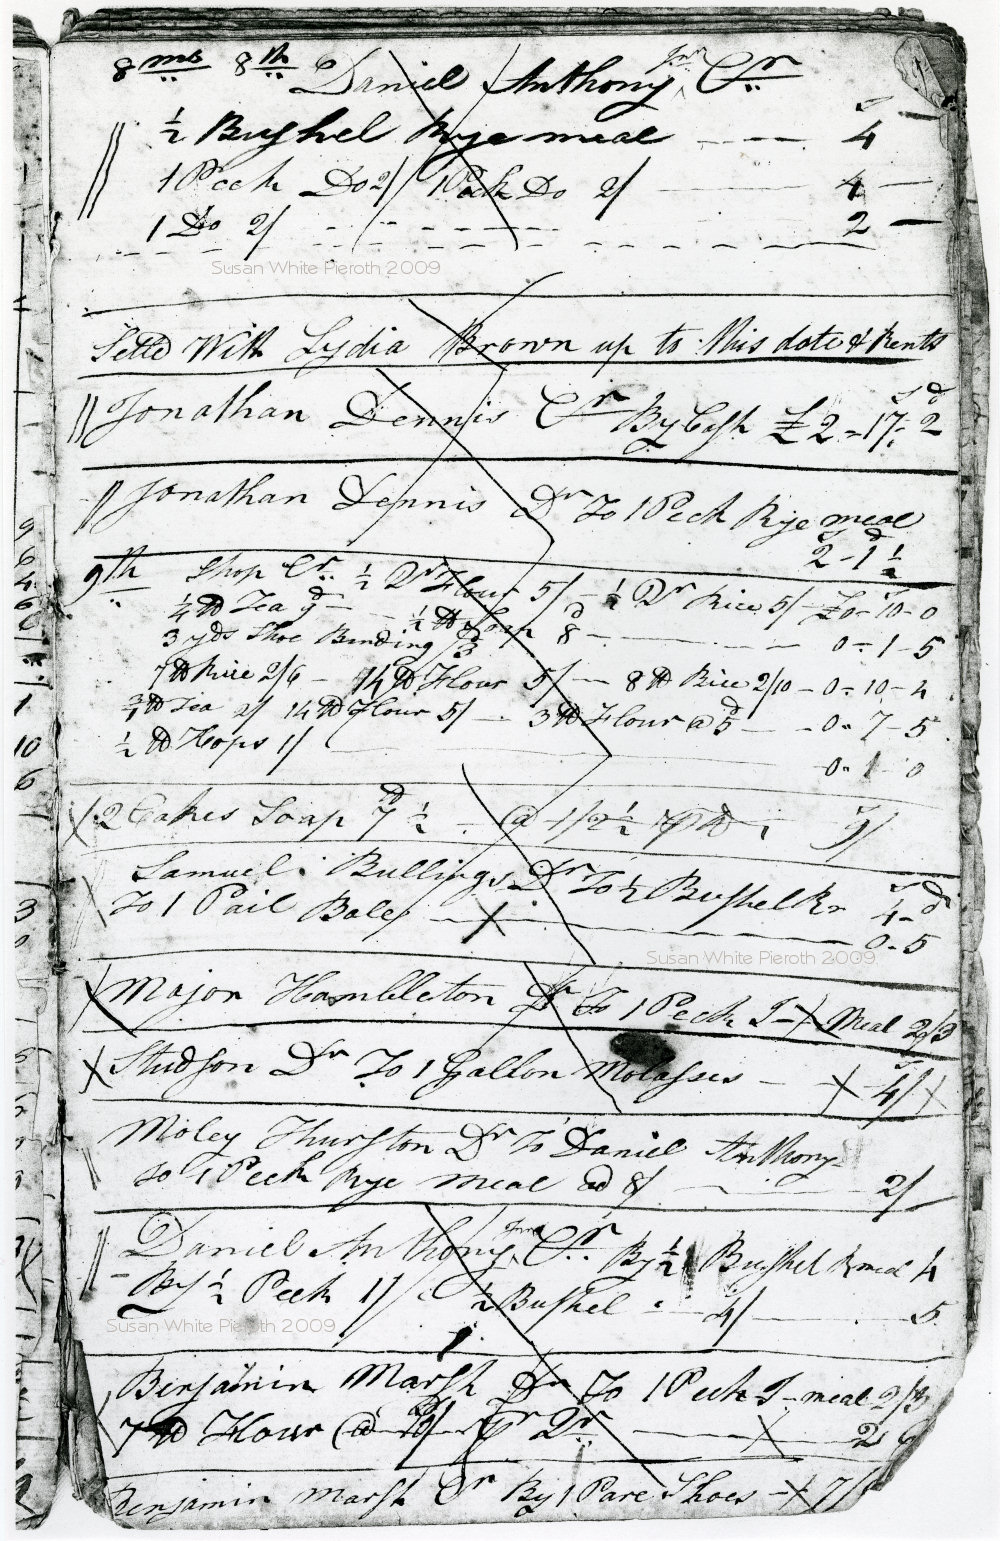 8 mo 8th Daniel Anthony Jnr Cr
½ Bushel Rye meal 4 —
1 Peck Do 2/ 1 Peck Do 2/ — 4 —
1 Do 2/ 2 —
Susan White Pieroth 2009
Settd With Lydia Brown up to this date & Rents
Jonathan Dennis Cr By Cash £2 - 17 - 2
Jonathan Dennis Dr To 1 Peck Rye meal
2 - 1 ½
9th Shop Cr ½ Qr Flour 5/ — Qr Rice 5/ — £0 - 10 - 0
¼ lb Tea — ½ lb Soap 8 —
3 yds Shoe Binding /3 — 0 - 1 - 5
7 lb Rice 2/6 — 14 lb Flour 5/ — 8 lb Rice 2/10 — 0 - 10 - 4
lb Tea 2/ 14 lb Flour 5/ — 3 lb Flour @ 5 — 0 - 7 - 5
½ lb Hops 1/ 0 - 1 - 0
2 Cakes Soap 7 ½ @ 1/2½ lb 9/
Samuel Bullings Dr To ½ Bushel 4 -
To 1 Pail Bales 0 - 5
Susan White Pieroth 2009
Major Hambleton Dr To 1 Peck I - Meal 2/3
Studson Dr To 1 Gallon Molasses — 4/
Moley Thurston Dr To Daniel Anthony
to 1 Peck Rye meal @ 8/ — 2/
Daniel Anthony Jnr Cr By ½ Bushel R meal 4
By ½ Peck 1/ ½ Bushel 4/ — 5
Susan White Pieroth 2009
Benjamin Marsh Dr To 1 Peck I - meal 2/3
7 lb Flour @ Qr — 2
Benjamin Marsh Cr By 1 Pare Shoes 7/